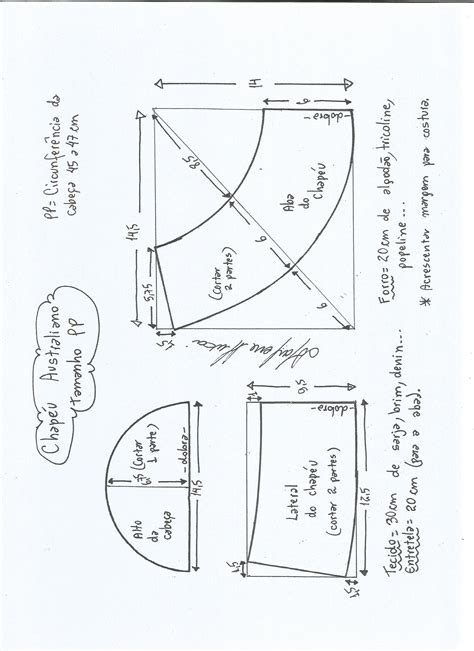 Chapéu Australiano
tamanho PP
PP = Circunferência da
cabeça 45 a 47 cm
Alto
da
cabeça
6,75
(Cortar
1 parte)
-dobra-
14,5
14,5
5,75
1,5
8,5
6
6
(cortar
2 partes)
Aba
do
Chapéu
-dobra-
6
14
1,5
1,5
Lateral
do chapéu
(cortar 2 partes)
-dobra-
9,5
16,5
Tecido = 30cm de sarja, brim, denin...
Entretela = 20 cm (para a aba).
Forro = 20cm de algodão, tricoline,
popeline...
* Acrescentar margem para costura.